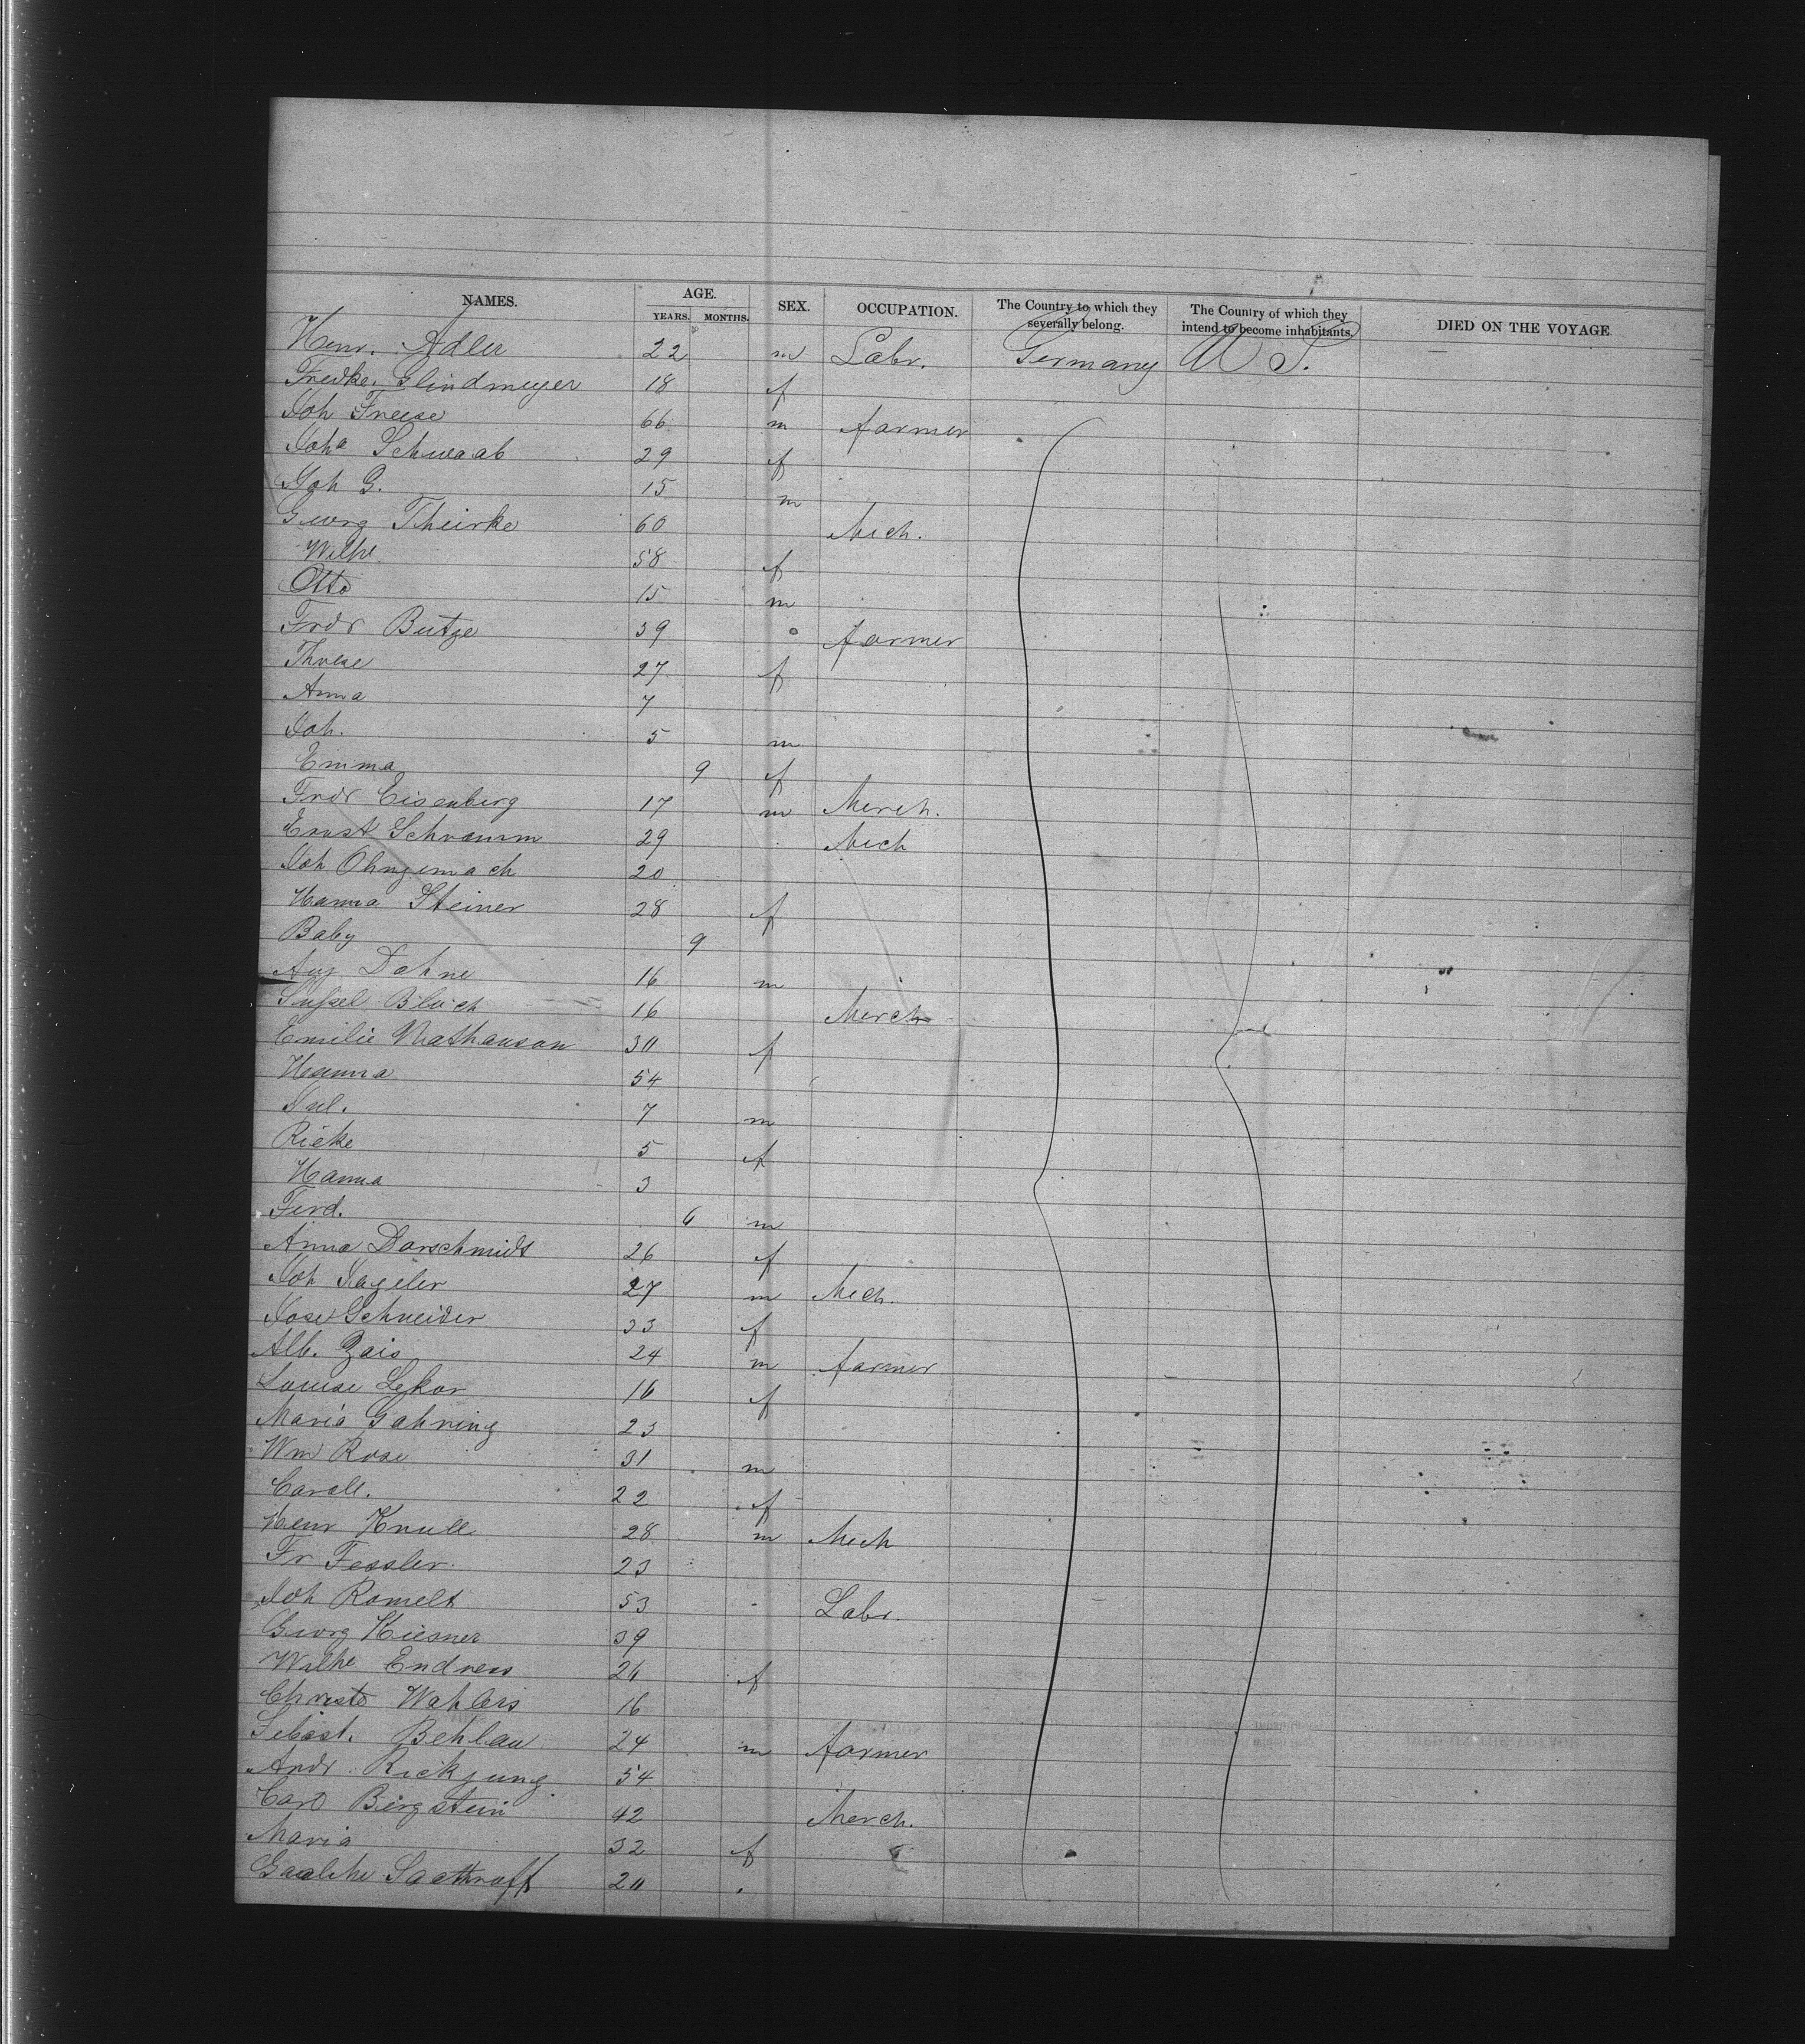 NAMES. AGE. YEARS. MONTHS. SEX. OCCUPATION. The Country to which they severally belong. The Country of which they intend to become inhabitants. DIED ON THE VOYAGE
Henr. Adler 22 m Labr. Germany U S.
Fredke. Glindmeyer 18 f
Joh Freese 66 m farmer
Joha Schwaab 29 f
Joh G. 15 m
Georg Theirke 60 Mech.
Wilhe 58 f
Otto 15 m
Frdr Butze 39 " farmer
Threse 27 f
Anna 7
Joh. 5 m
Emma 9 f
Frdr Eisenberg 17 m Merch.
Ernst Schramm 29 Mech
Joh Ohngemach 20
Hanna Steiner 28 f
Baby 9
Aug Dohne 16 m
Bloch 16 Merch
Emilie Nathanson 30 f
Hanna 54
Jul. 7 m
Rieke 5 f
Hanna 3
Ferd. 6 m
Anna Dorschmidt 26 f
Joh Sageler 27 m Mech.
Josef Schneider 33 f
Alb. Zais 24 m farmer
Louise Lekar 16 f
Maria Gahring 23
Wm Rose 31 m
Caroll. 22 f
Henr Knull 28 m Mech
Fr Fessler. 23
Joh Romelt 53 Labr.
Georg Kiesner 39
Wilhe Endress 26 f
Christe Wahlers 16
Sebast. Behlau 24 m farmer
Andr Rickjung 54
Carl Bergstein 42 Merch.
Maria 32 f
Saathoff 20 "